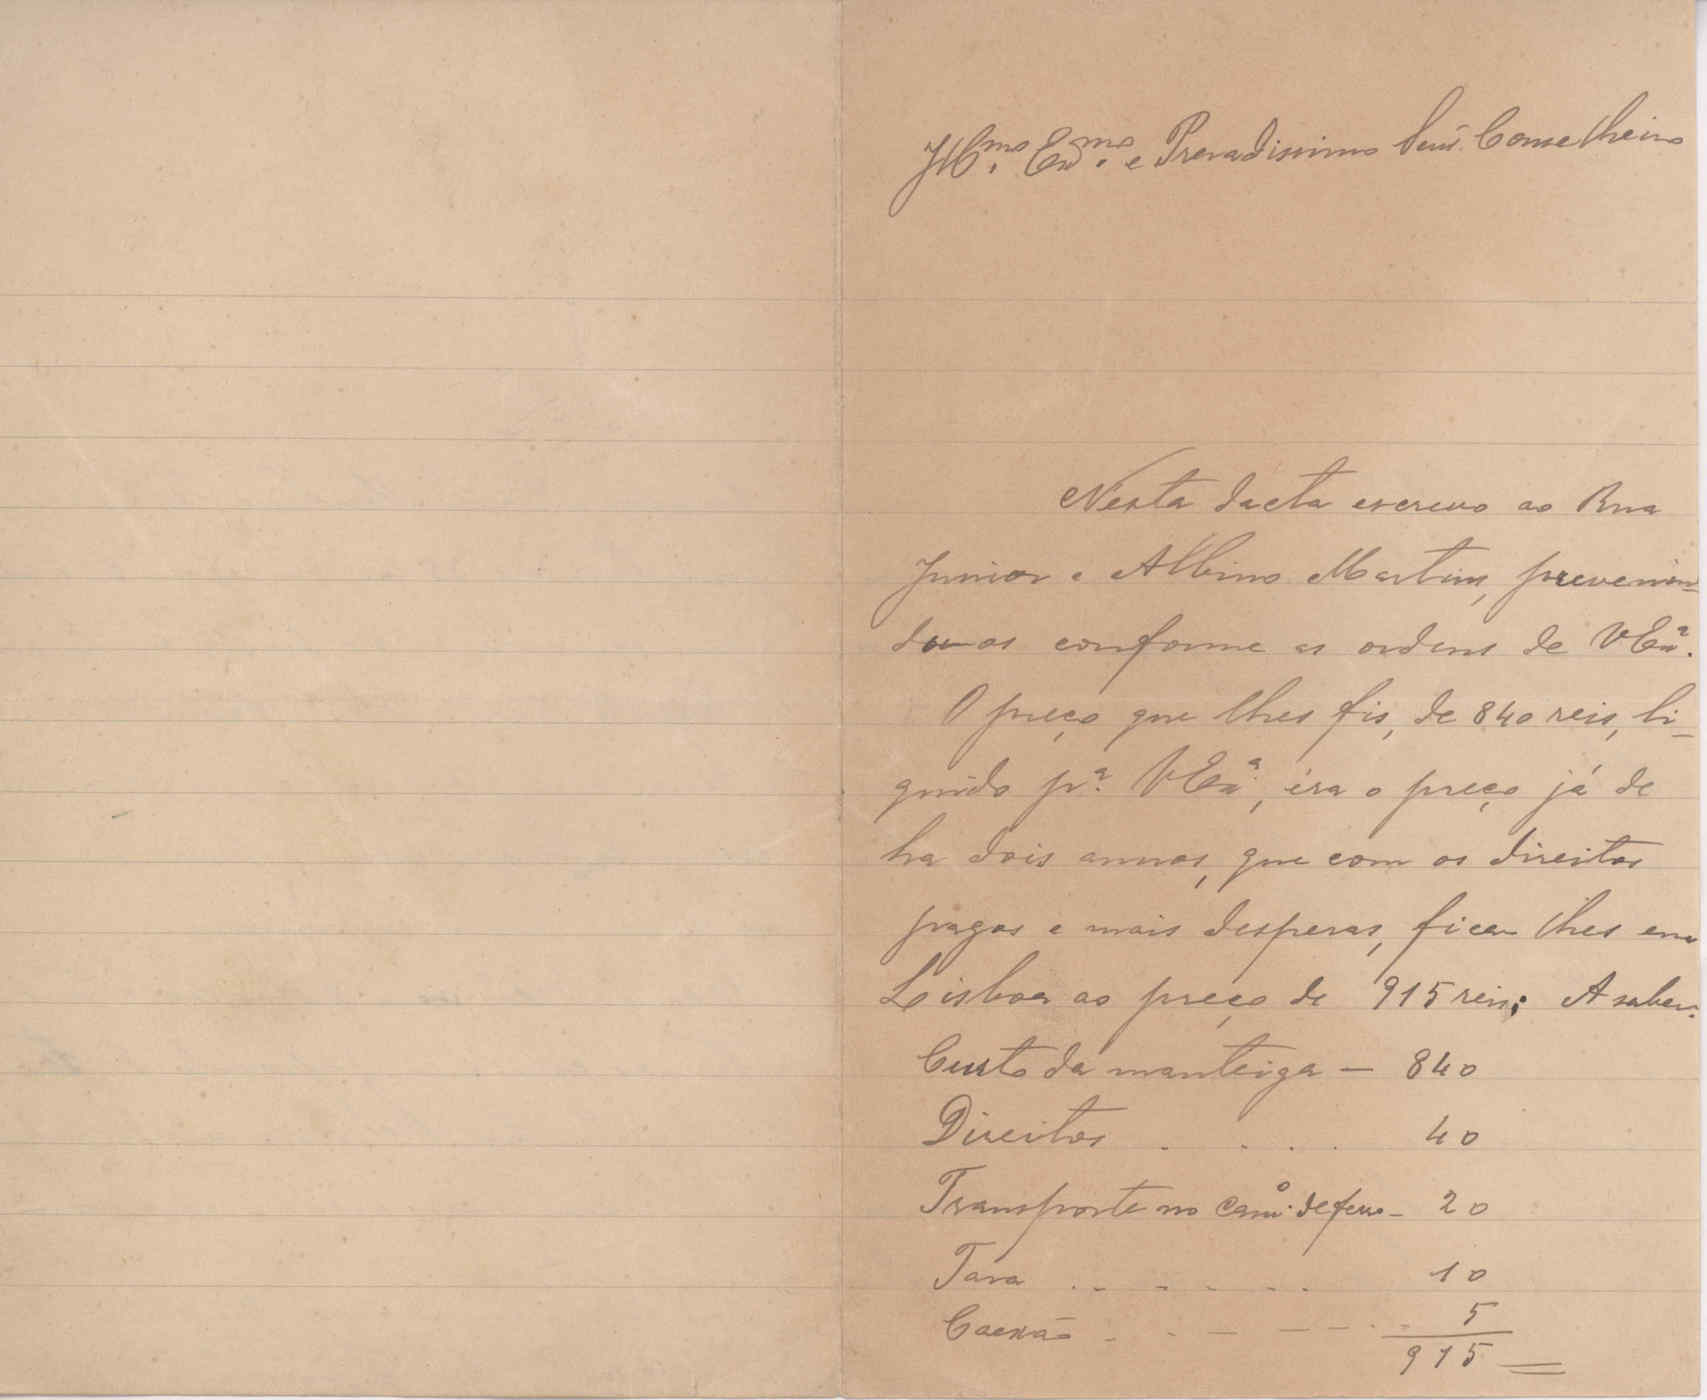 Ill.mo Ex.mo e Prezadissimo Senr. Conselheiro
Nesta dacta escrevo ao Rua
Junior e Albino Martins, prevenin-
do-os conforme as ordens de V Ex.ª
O preço que lhes fis, de 840 reis, li-
quido p.ª V Ex.ª, éra o preço já de
ha dois annos, que com os direitos
pagos e mais despezas, fica lhes em
Lisboa ao preço de 915 reis; A saber:
Custo da manteiga — 840
Direitos . . . . 40
Transporte no cam.º de ferro - 20
Tara . . - - - . . 10
Caexão . - — — — . . 5
915